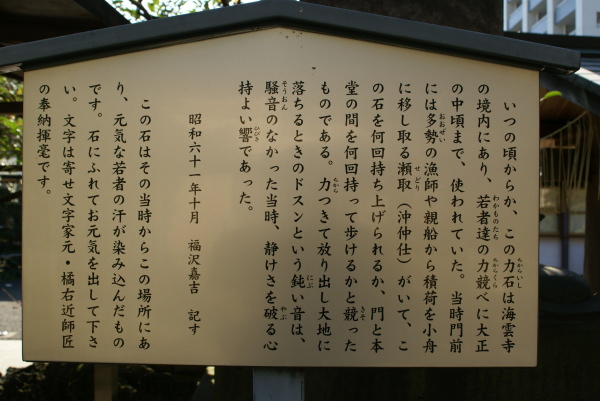 いつの頃からか、この力石は海雲寺
の境内にあり、若者達の力競べに大正
の中頃まで、使われていた。当時門前
には多勢の漁師や親船から積荷を小舟
に移し取る瀬取（沖仲仕）がいて、こ
の石を何回持ち上げられるか、門と本
堂の間を何回持って歩けるかと競った
ものである。力つきて放り出し大地に
落ちるときのドスンという鈍い音は、
騒音のなかった当時、静けさを破る心
持よい響であった。
昭和六十一年十月 福沢嘉吉 記す
この石はその当時からこの場所にあ
り、元気な若者の汗が染み込んだもの
です。石にふれてお元気を出して下さ
い。文字は寄せ文字家元・橘右近師匠
の奉納揮毫です。